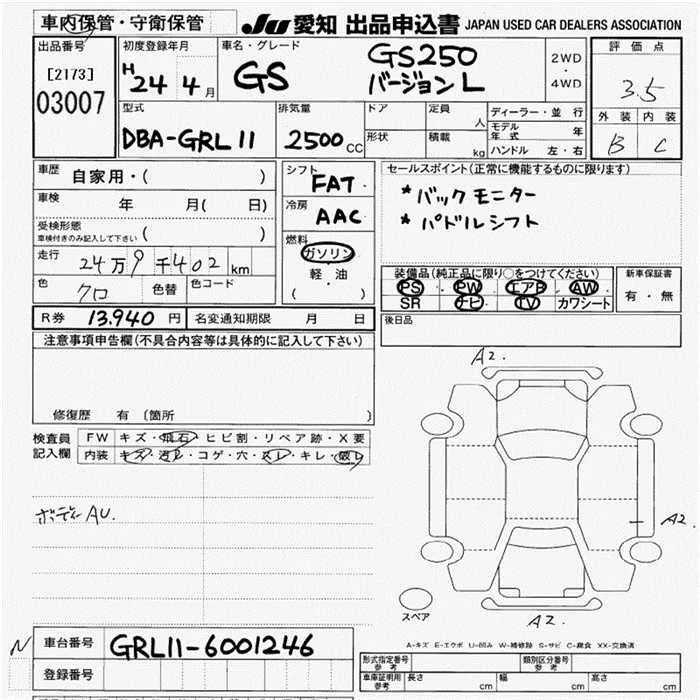 車内保管・守衛保管
JU 愛知 出品申込書 JAPAN USED CAR DEALERS ASSOCIATION
出品番号
[2173]
03007
初度登録年月
H 24 4月
車名・グレード
GS
GS250
バージョンL
2WD
・
4WD
評価点
3.5
外装 内装
B C
型式
DBA-GRL11
排気量
2500CC
ドア
形状
定員
人
積載
kg
ディーラー・並行
モデル年式 年
ハンドル 左・右
車歴
自家用・( )
車検
年 月( 日)
受検形態
車検付きのみ記入して下さい ( )
走行 24万9千402km
色 クロ 色替 色コード
シフト
FAT
冷房
AAC
燃料
ガソリン
軽・油
( )
セールスポイント(正常に機能するものに限ります)
*バックモニター
*パドルシフト
装備品(純正品に限り○をつけてください)
PS PW エアB AW
SR ナビ TV カワシート
新車保証書
有・無
R券 13,940円 名変通知期限 月 日
後日品
注意事項申告欄(不具合内容等は具体的に記入して下さい)
修復歴 有〔箇所 〕
検査員
記入欄
FW キズ・飛石・ヒビ割・リペア跡・X要
内装 キズ・汚レ・コゲ・穴・スレ・キレ・破レ
ボディーAU.
A2.
A2.
A2.
スペア
A-キズ E-エクボ U-凹み W-補修跡 S-サビ C-腐食 XX-交換済
N 車台番号 GRL11-6001246
登録番号
形式指定番号
参考
類別区分番号
参考
車庫証明用
参考
長さ cm 幅 cm 高さ cm